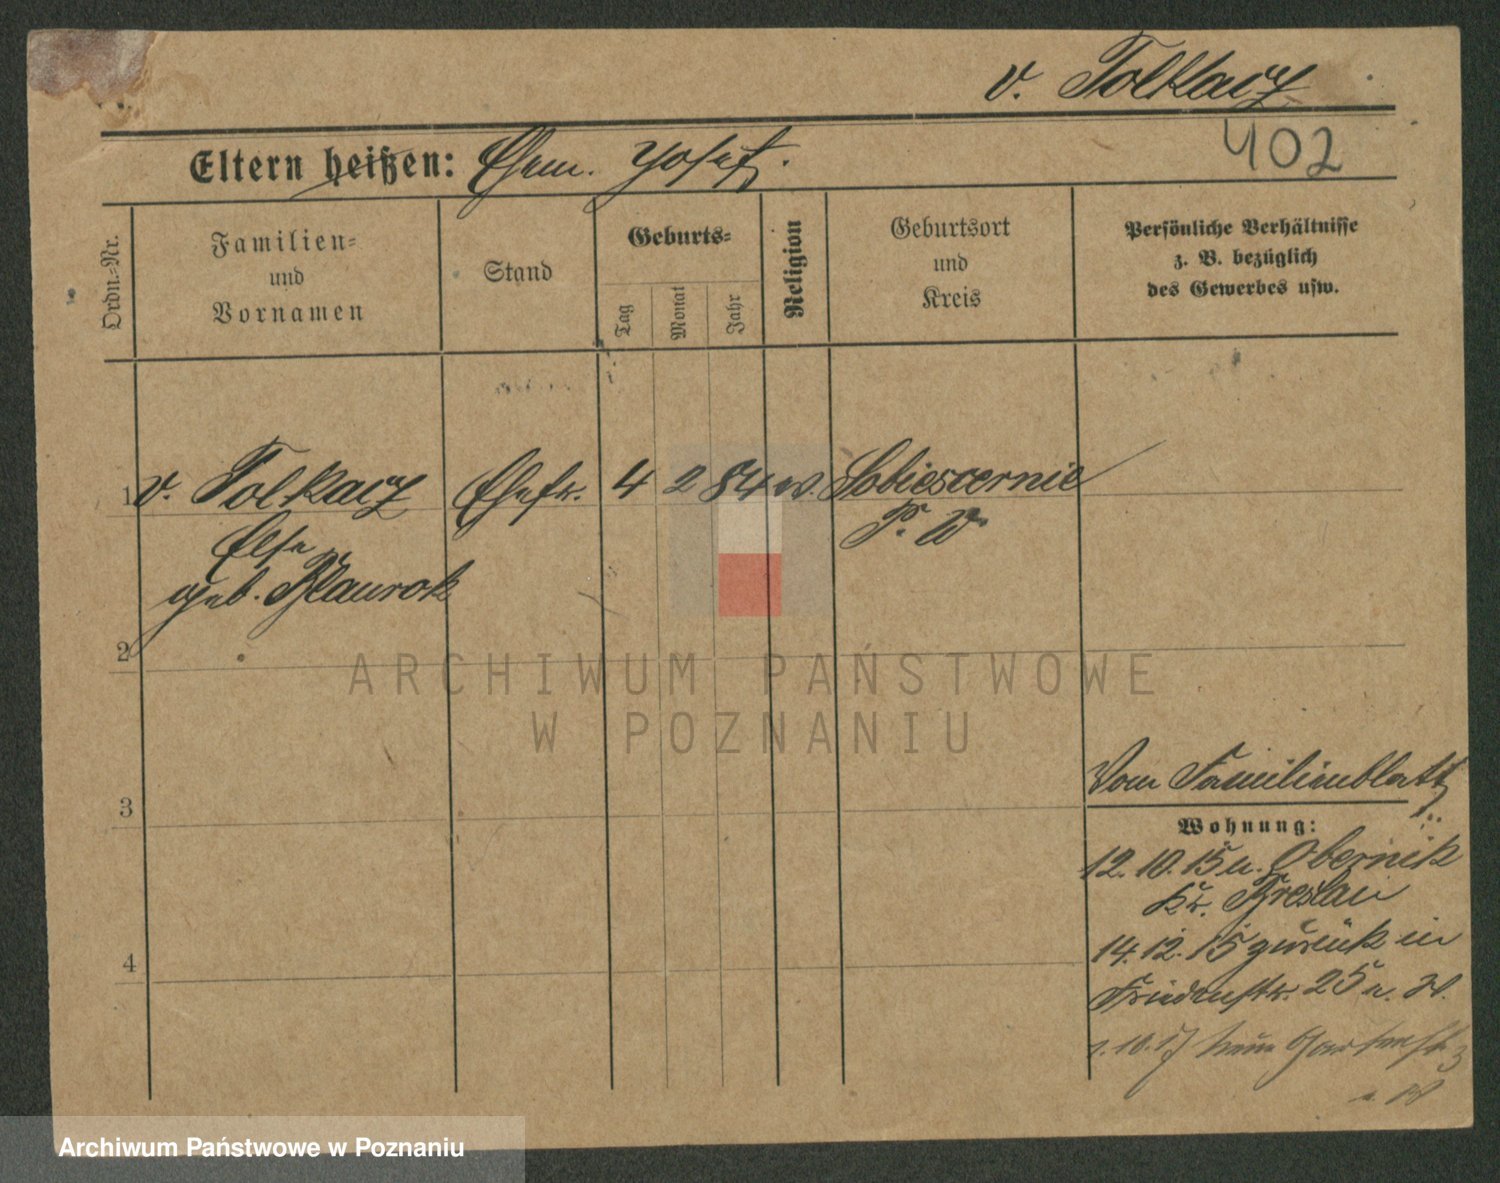 v. Tolkacz
402
Eltern heißen: Ehem. Josef.
Ordn.-Nr.
Familien-
und
Vornamen
Stand
Geburts-
Tag
Monat
Jahr
Religion
Geburtsort
und
Kreis
Persönliche Verhältnisse
z. B. bezüglich
des Gewerbes usw.
1 v. Tolkacz Ehefr. 4 2 84 Sobiescernie
Else P. W
geb. Blaurok
2
ARCHIWUM PAŃSTWOWE
W POZNANIU
Vom Familienblatt
3
Wohnung:
12. 10. 15 n. Obernik
Kr. Breslau
14. 12. 15 zurück in
4
Friedenstr. 25 a. W.
1. 10. 17 neue Gartenstr.
Archiwum Państwowe w Poznaniu